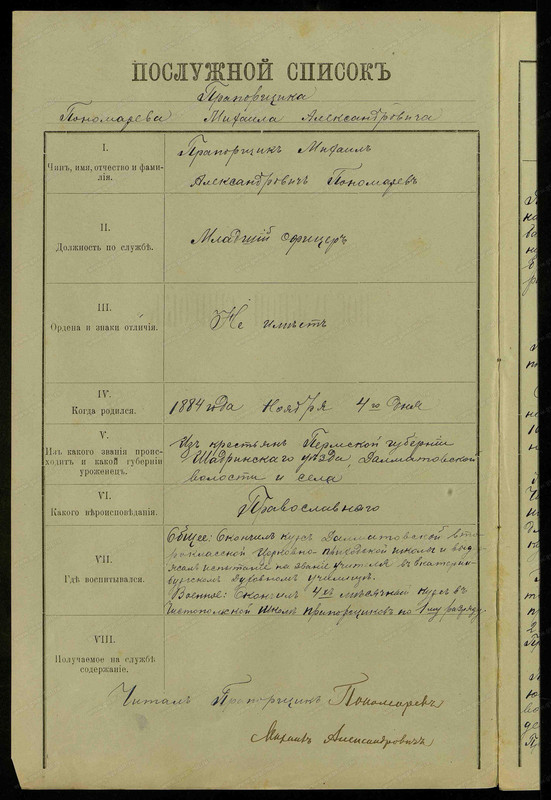 ПОСЛУЖНОЙ СПИСОКЪ
Прапорщика
Пономарева Михаила Александровича
I.
Чинъ, имя, отчество и фами-
лія.
Прапорщикъ Михаилъ
Александровичъ Пономаревъ
II.
Должность по службѣ.
Младшій офицеръ
III.
Ордена и знаки отличія.
Не имѣетъ
IV.
Когда родился.
1884 года Ноября 4го дня
V.
Изъ какого званія проис-
ходитъ и какой губерніи
уроженецъ.
Изъ крестьянъ Пермской губерніи
Шадринскаго уѣзда, Далматовской
волости и села
VI.
Какого вѣроисповѣданія.
Православнаго
VII.
Гдѣ воспитывался.
Общее: Окончилъ курсъ Далматовской вто-
роклассной церковно-приходской школы и выдер-
жалъ испытаніе на званіе учителя въ Екатерин-
бургскомъ Духовномъ училищѣ.
Военное: Окончилъ 4хъ мѣсячный курсъ въ
Чистопольской школѣ прапорщиковъ по 1му разряду.
VIII.
Получаемое на службѣ
содержаніе.
Читалъ Прапорщикъ Пономаревъ
Михаилъ Александровичъ